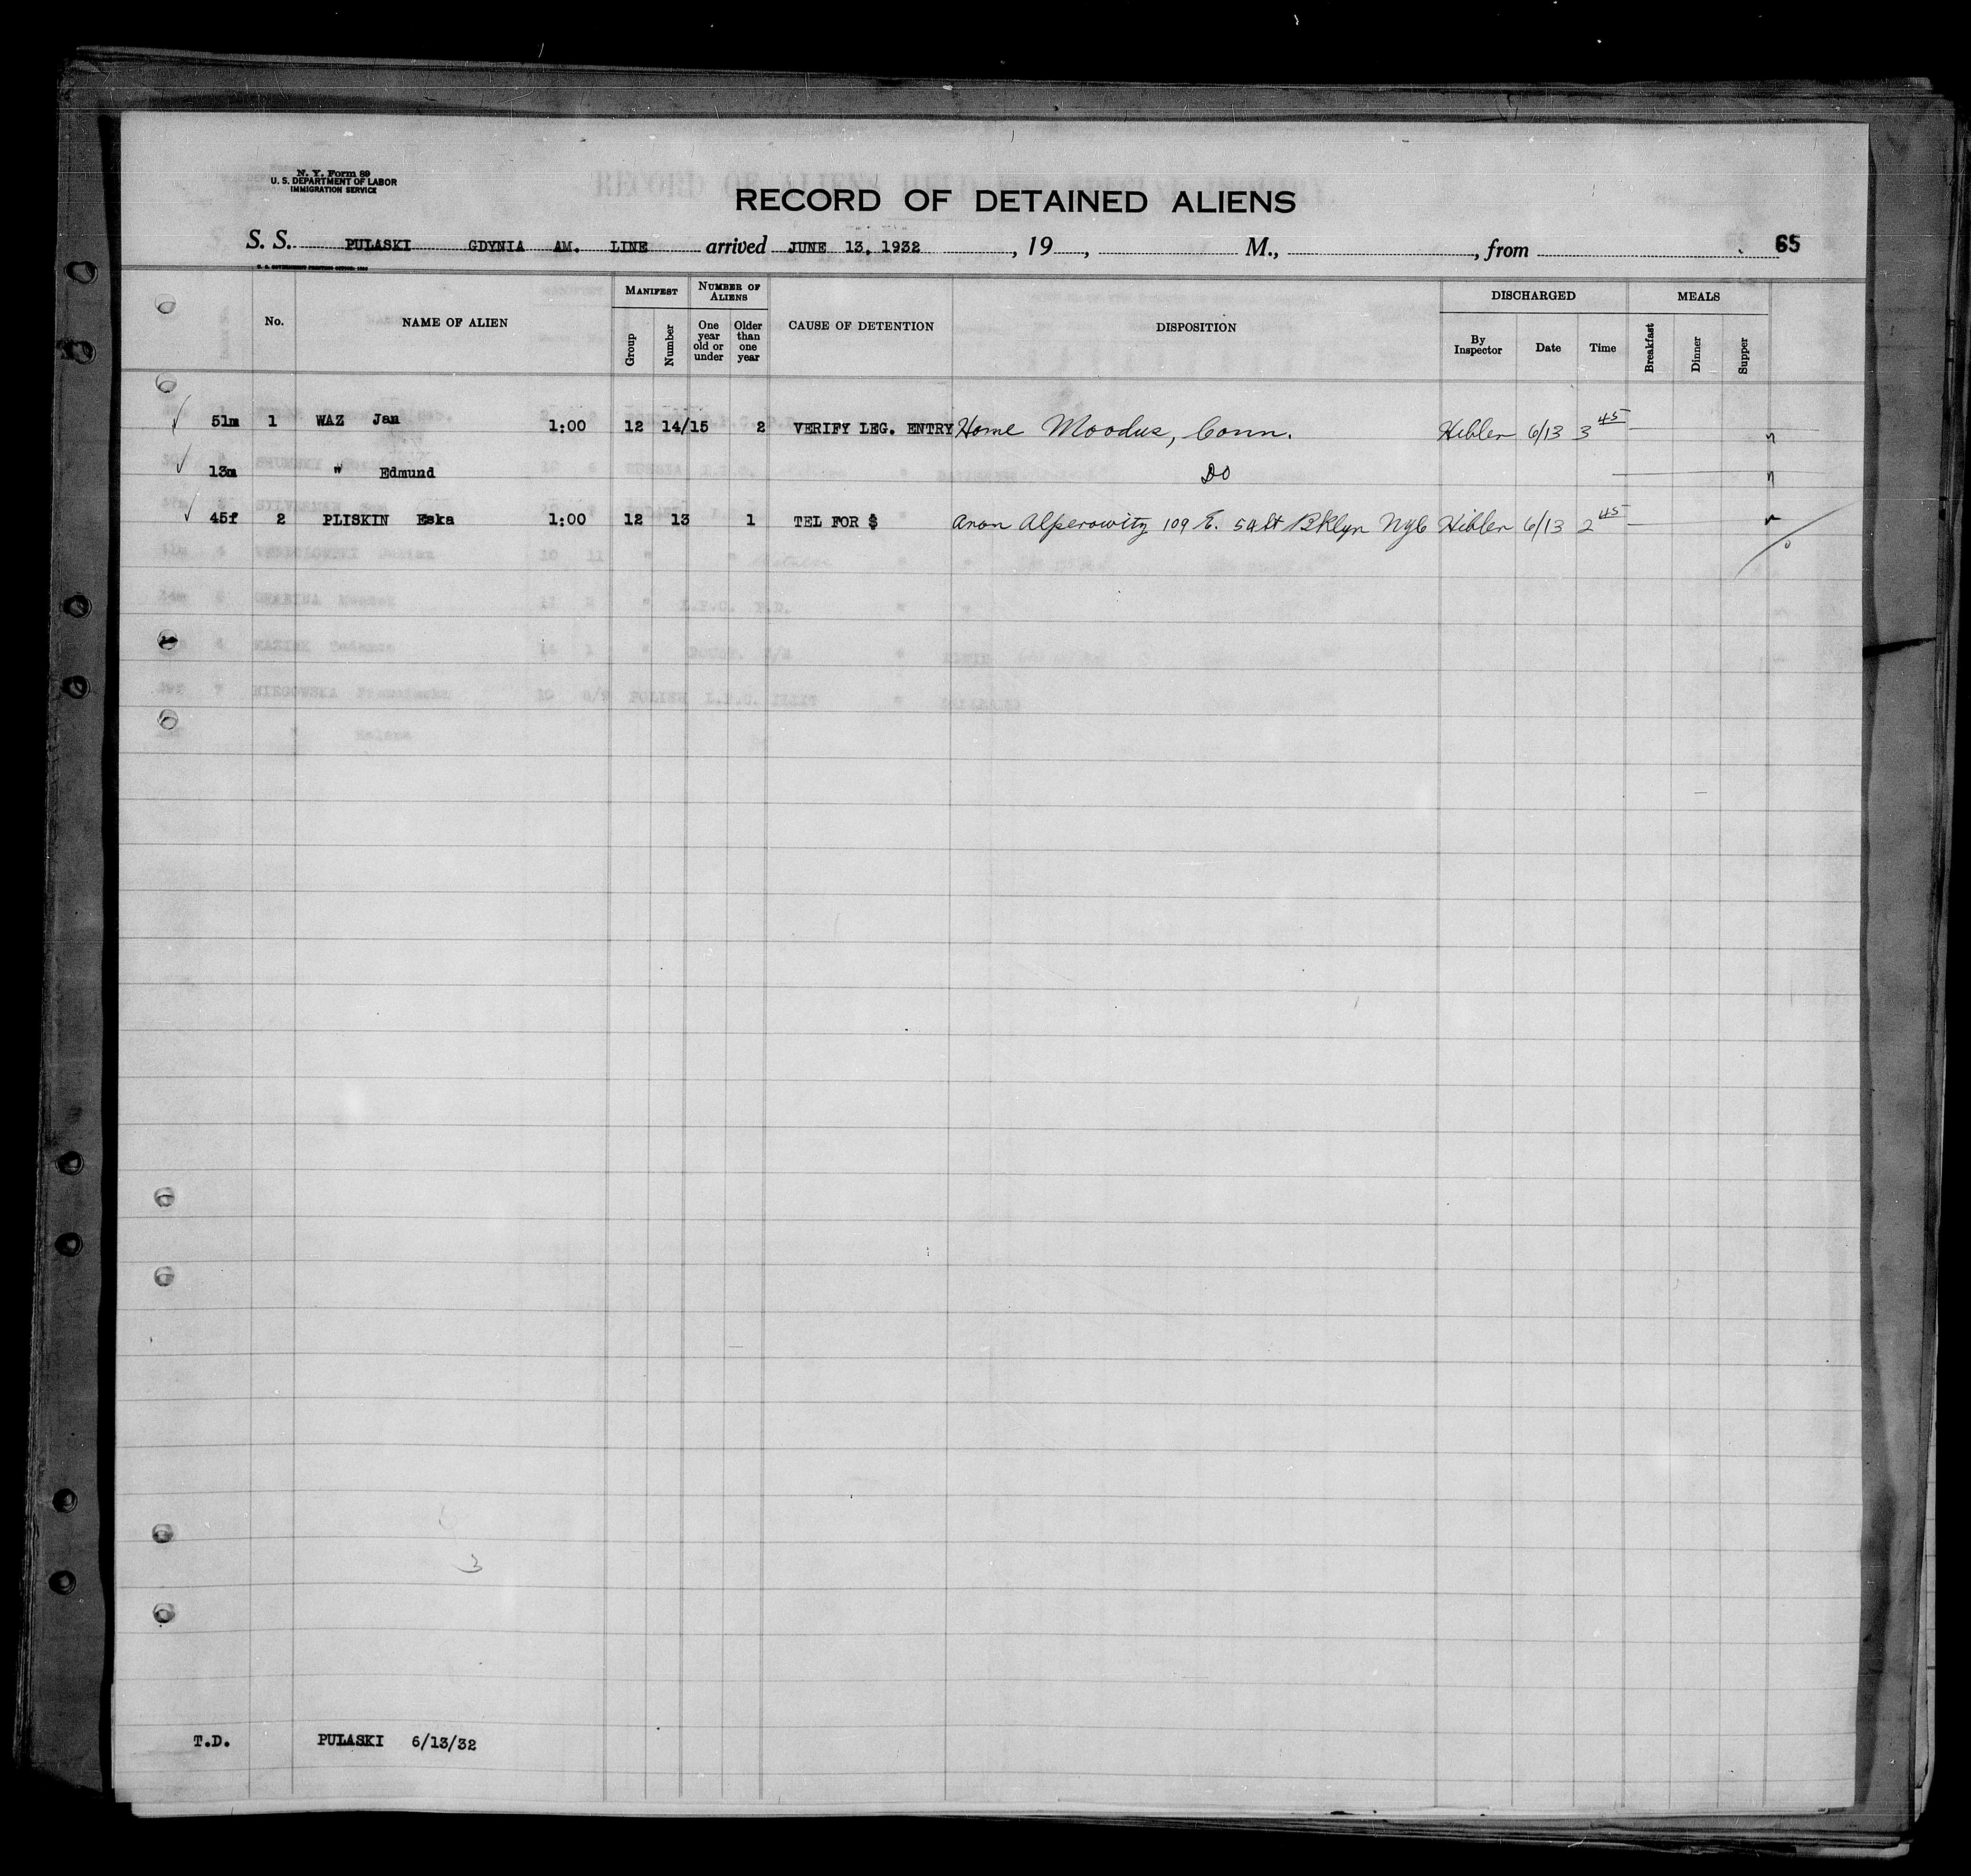 N. Y. Form 89
U. S. DEPARTMENT OF LABOR
IMMIGRATION SERVICE
RECORD OF DETAINED ALIENS
S. S. PULASKI GDYNIA AM. LINE arrived JUNE 13, 1932, 19, M., from 65
U. S. GOVERNMENT PRINTING OFFICE
No. NAME OF ALIEN MANIFEST Group Number NUMBER OF ALIENS One year old or under Older than one year CAUSE OF DETENTION DISPOSITION DISCHARGED By Inspector Date Time MEALS Breakfast Dinner Supper
51m 1 WAZ Jan 1:00 12 14/15 2 VERIFY LEG. ENTRY Home Moodus, Conn. Hibler 6/13 3 45
13m " Edmund DO
45f 2 PLISKIN Eska 1:00 12 13 1 TEL FOR $ Aron Alperowitz 109 E. 59 St Bklyn NYC Hibler 6/13 2 45
3
T.D. PULASKI 6/13/32